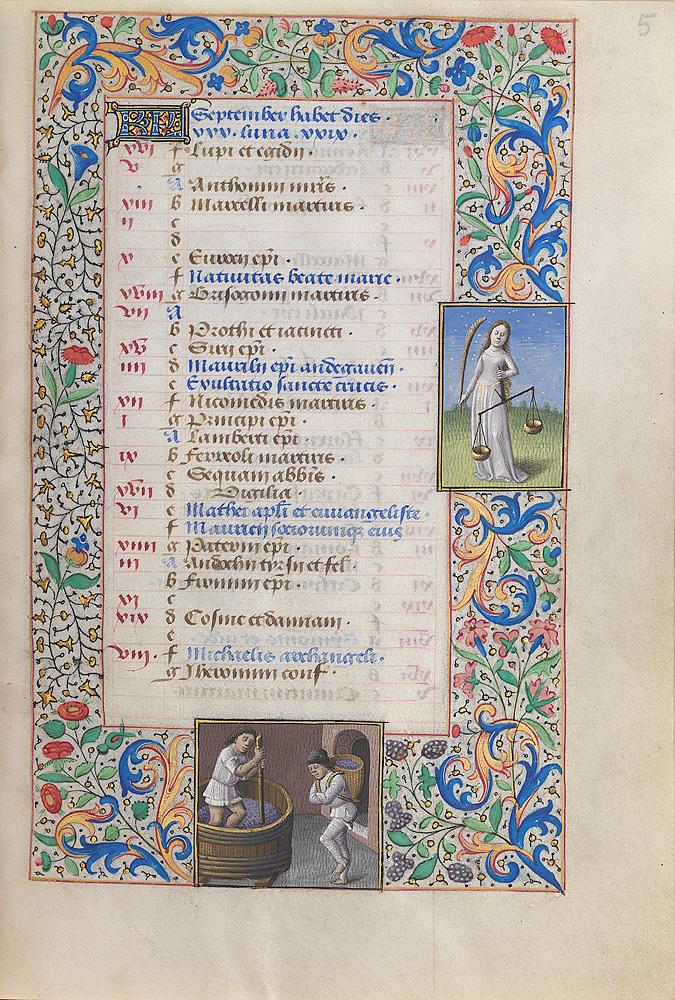 5
KL September habet dies
xxx. luna. xxix.
xvi f Lupi et egidii.
v g
A Anthonini mris.
xiii b Marcelli martiris.
ii c
d
x e Eurcii epi.
f Nativitas beate marie.
xviii g Grisogoni martiris
vii A
b Prothi et iacincti.
xv c Sirii epi.
iiii d Maurilii epi andegaven.
e Exultatio sancte crucis.
xii f Nicomedis martiris.
i g Principi epi.
A Lamberti epi
ix b Ferreoli martiris.
c Sequani abbis.
xvii d Vigilia
vi e Mathei apli et euvangeliste.
f Mauricii sociorumque eius
xiiii g Paterni epi.
iii A Andochii tyrsii et feli.
b Firmini epi.
vi c
xix d Cosme et damiani.
e
viii. f Michaelis archangeli.
g Iheronimi conf.